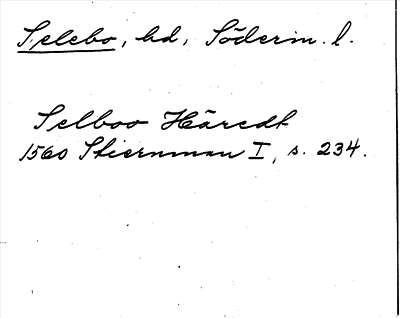 Selebo, hd, Söderm. l.
Selboo Häredt
1560 Stiernman I, s. 234.